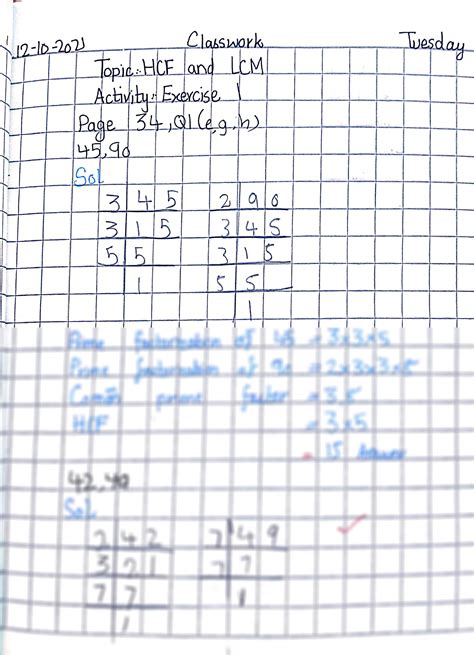 12-10-2021 Classwork Tuesday
Topic:- HCF and LCM
Activity:- Exercise 1
Page 34, Q1(e,g,h)
45,90
Sol
3 45 2 90
3 15 3 45
5 5 3 15
1 5 5
1
Prime factorization of 45 = 3×3×5
Prime factorization of 90 = 2×3×3×5
Common prime factor = 3,5
HCF = 3×5
= 15 Answer
42,
Sol
2 42 7 49
3 21 7 7
7 7 1
1